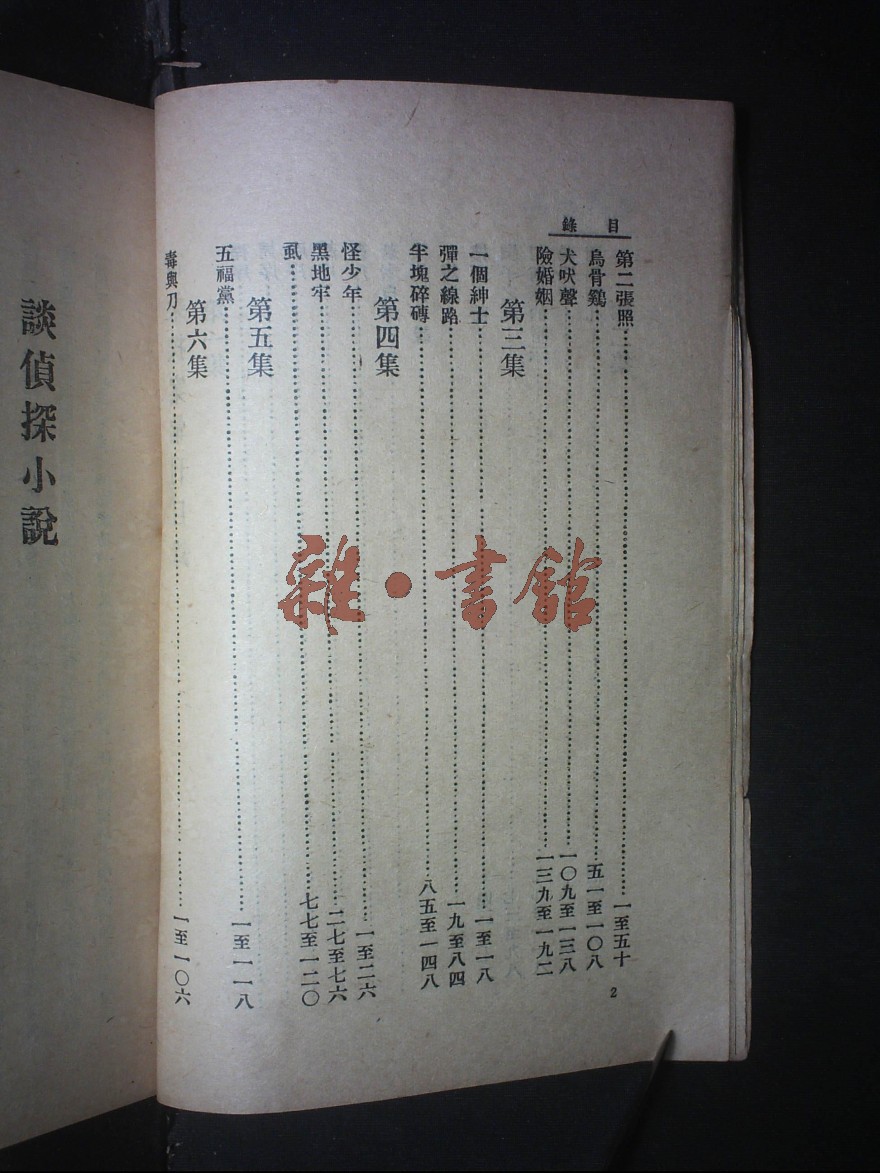 目錄
第二張照……一至五十
烏骨鷄……五一至一〇八
犬吠聲……一〇九至一三八
險婚姻……一三九至一九二
第三集
一個紳士……一至一八
彈之線路……一九至八四
半塊碎磚……八五至一四八
第四集
怪少年……一至二六
黑地牢……二七至七六
虱……七七至一二〇
第五集
五福黨……一至一一八
第六集
毒與刀……一至一〇六
2
談偵探小說
雜·書館